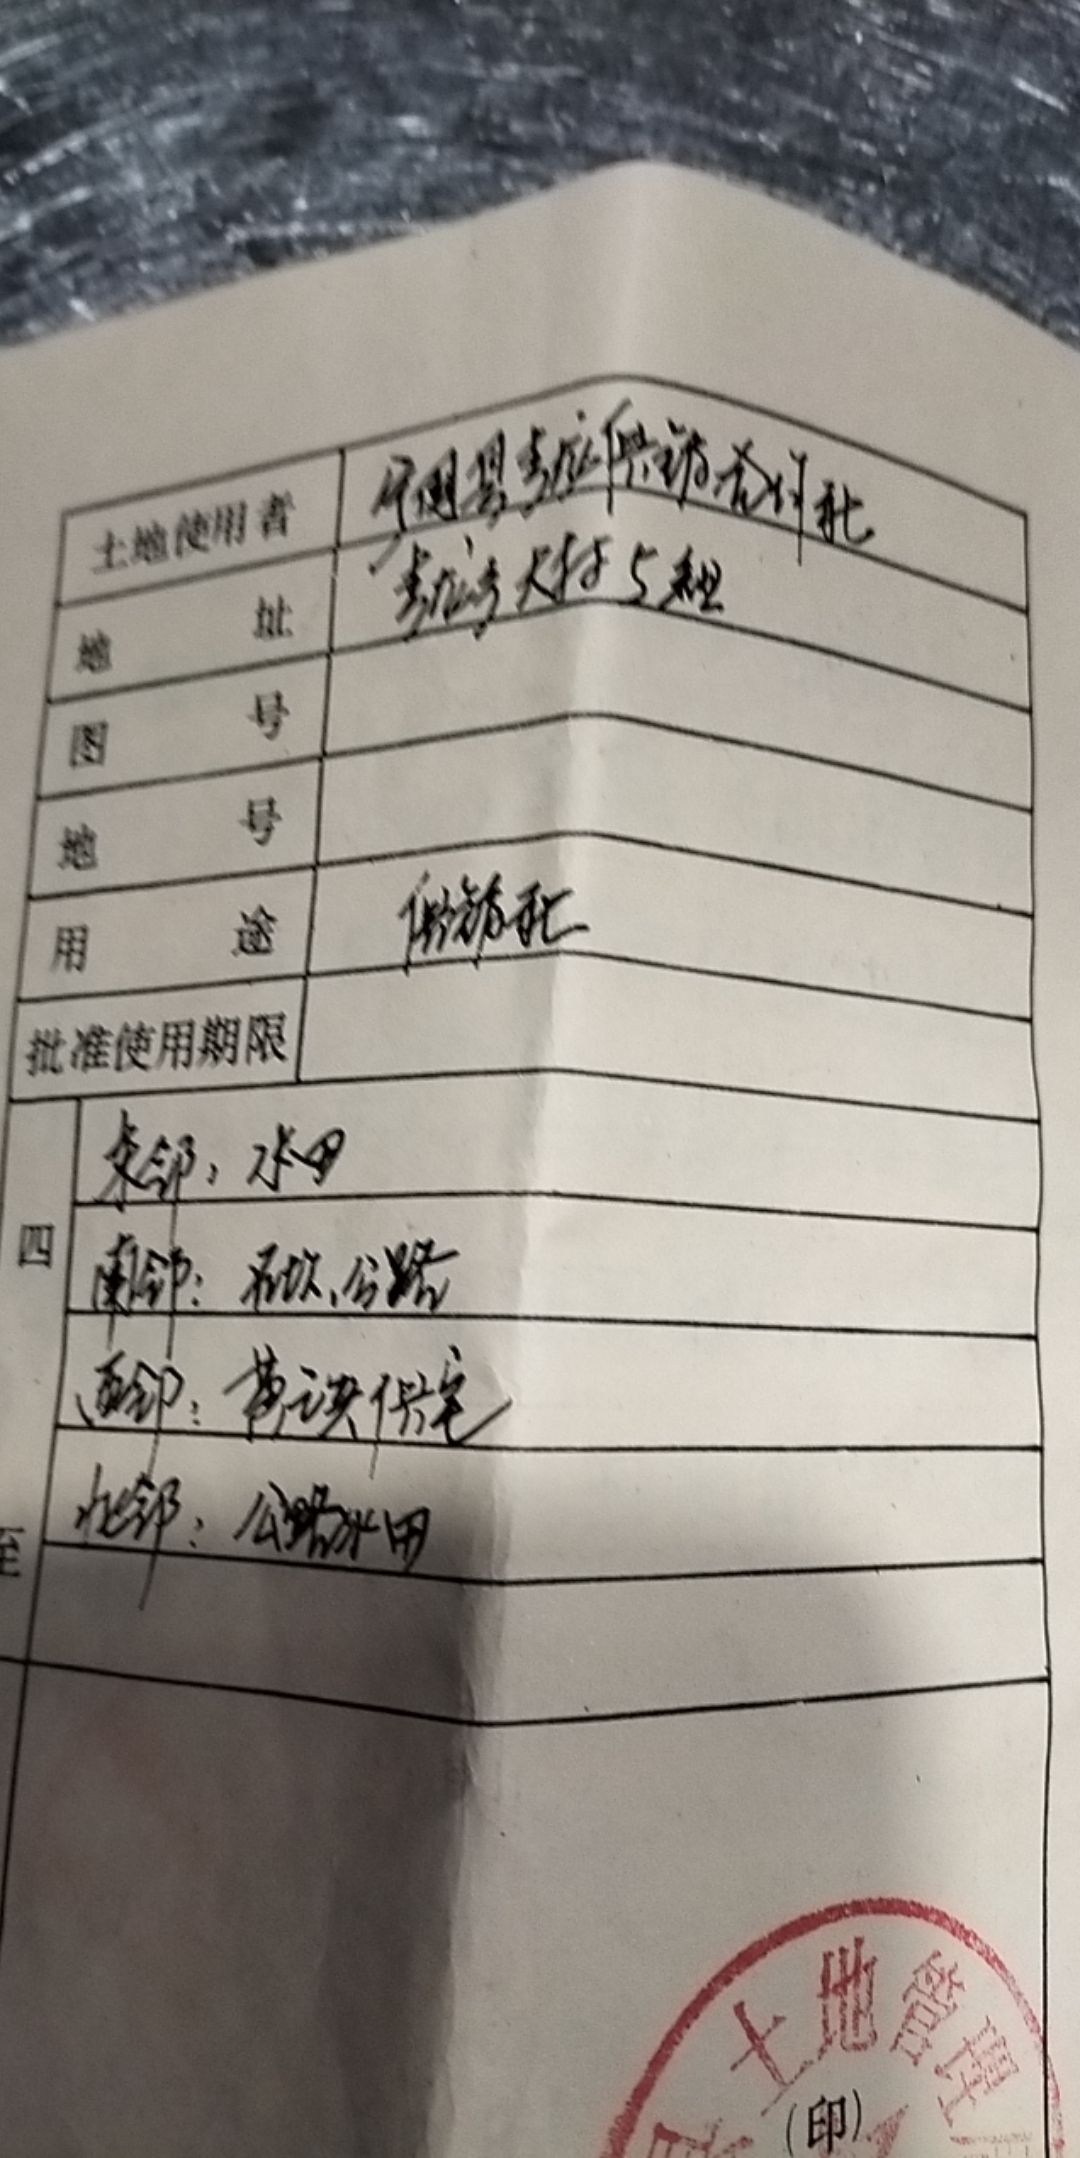 土地使用者 县供销合作社
地址 大村5组
图号
地号
用途 供销社
批准使用期限
四至
东邻：水田
南邻：石坎、公路
西邻：黄 住宅
北邻：公路水田
土地管理
(印)